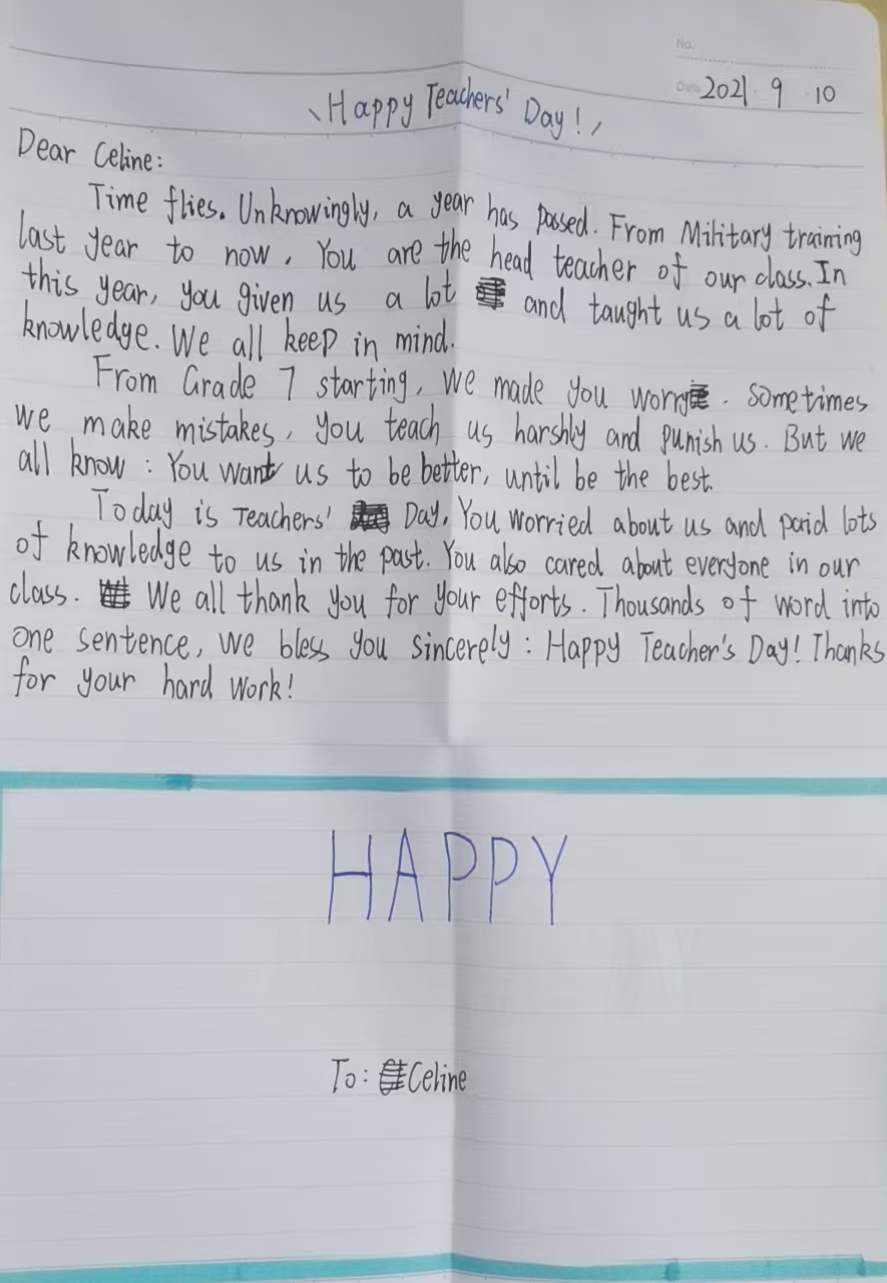 No.
Date 2021 . 9 . 10
、Happy Teachers' Day! /
Dear Celine:
Time flies. Unknowingly, a year has passed. From Military training
last year to now, You are the head teacher of our class. In
this year, you given us a lot and taught us a lot of
knowledge. We all keep in mind.
From Grade 7 starting, we made you worry. Sometimes
we make mistakes, you teach us harshly and punish us. But we
all know: You want us to be better, until be the best.
Today is Teachers' Day, You worried about us and paid lots
of knowledge to us in the past. You also cared about everyone in our
class. We all thank you for your efforts. Thousands of word into
one sentence, we bless you sincerely: Happy Teacher's Day! Thanks
for your hard work!
HAPPY
To: Celine